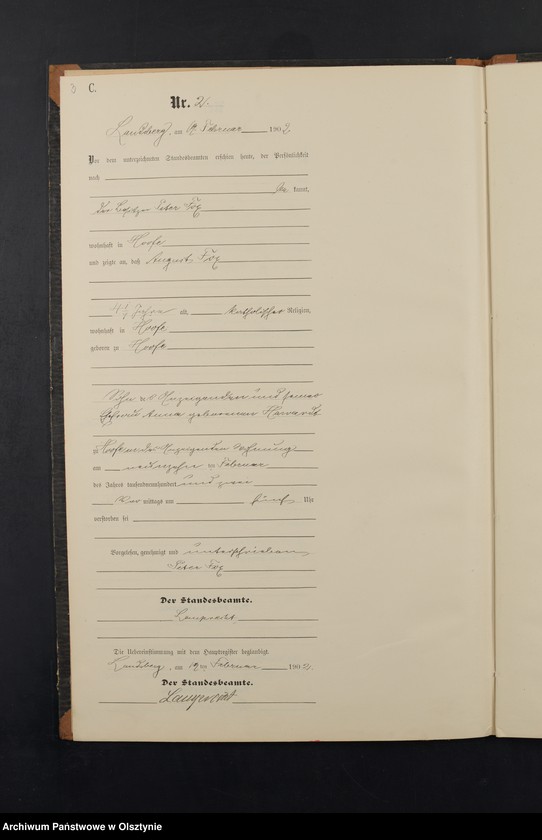 C.
Nr. 21.
Landsberg, am 19. Februar 1902.
Vor dem unterzeichneten Standesbeamten erschien heute, der Persönlichkeit
nach
be kannt,
der Besitzer Peter Fox
wohnhaft in Hoofe
und zeigte an, daß August Fox
4 1/2 Jahre alt, katholischer Religion,
wohnhaft in Hoofe
geboren zu Hoofe
Sohn des Anzeigenden und seiner
Ehefrau Anna geborenen
zu Hoofe in des Anzeigenden Wohnung
am neunzehn ten Februar
des Jahres tausendneunhundert und zwei
Vor mittags um fünf Uhr
verstorben sei
Vorgelesen, genehmigt und unterschrieben
Peter Fox
Der Standesbeamte.
Die Uebereinstimmung mit dem Hauptregister beglaubigt.
Landsberg, am 19ten Februar 1902.
Der Standesbeamte.
Archiwum Państwowe w Olsztynie